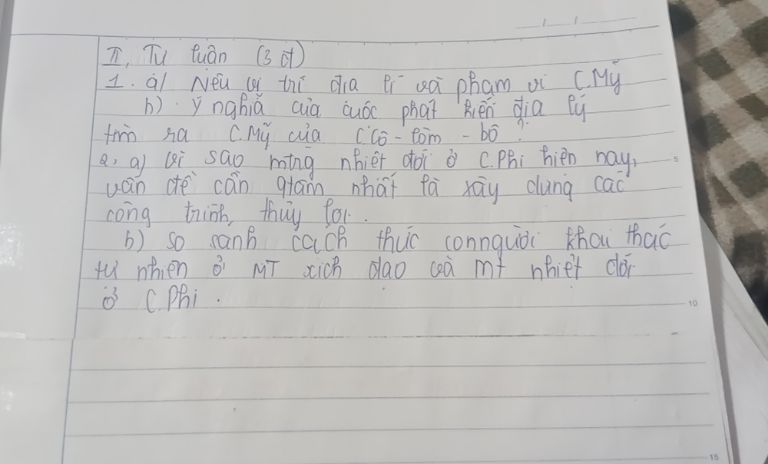 II, Tự luận (3 đ)
1. a) Nêu vị trí địa lí và phạm vi C.Mỹ
b) . ý nghĩa của cuốc phát kiến địa lý
tìm ra C.Mỹ của C Cô - lôm - bô ?
2, a) Vì sao mtrg nhiệt đới ở C.Phi hiện nay,
vấn đề cần qtâm nhất là xây dựng các
công trình, thủy lợi .
b) so sánh cách thức con người khai thác
tự nhiên ở MT xích đạo và mt nhiệt đới
ở C.Phi .
10
15